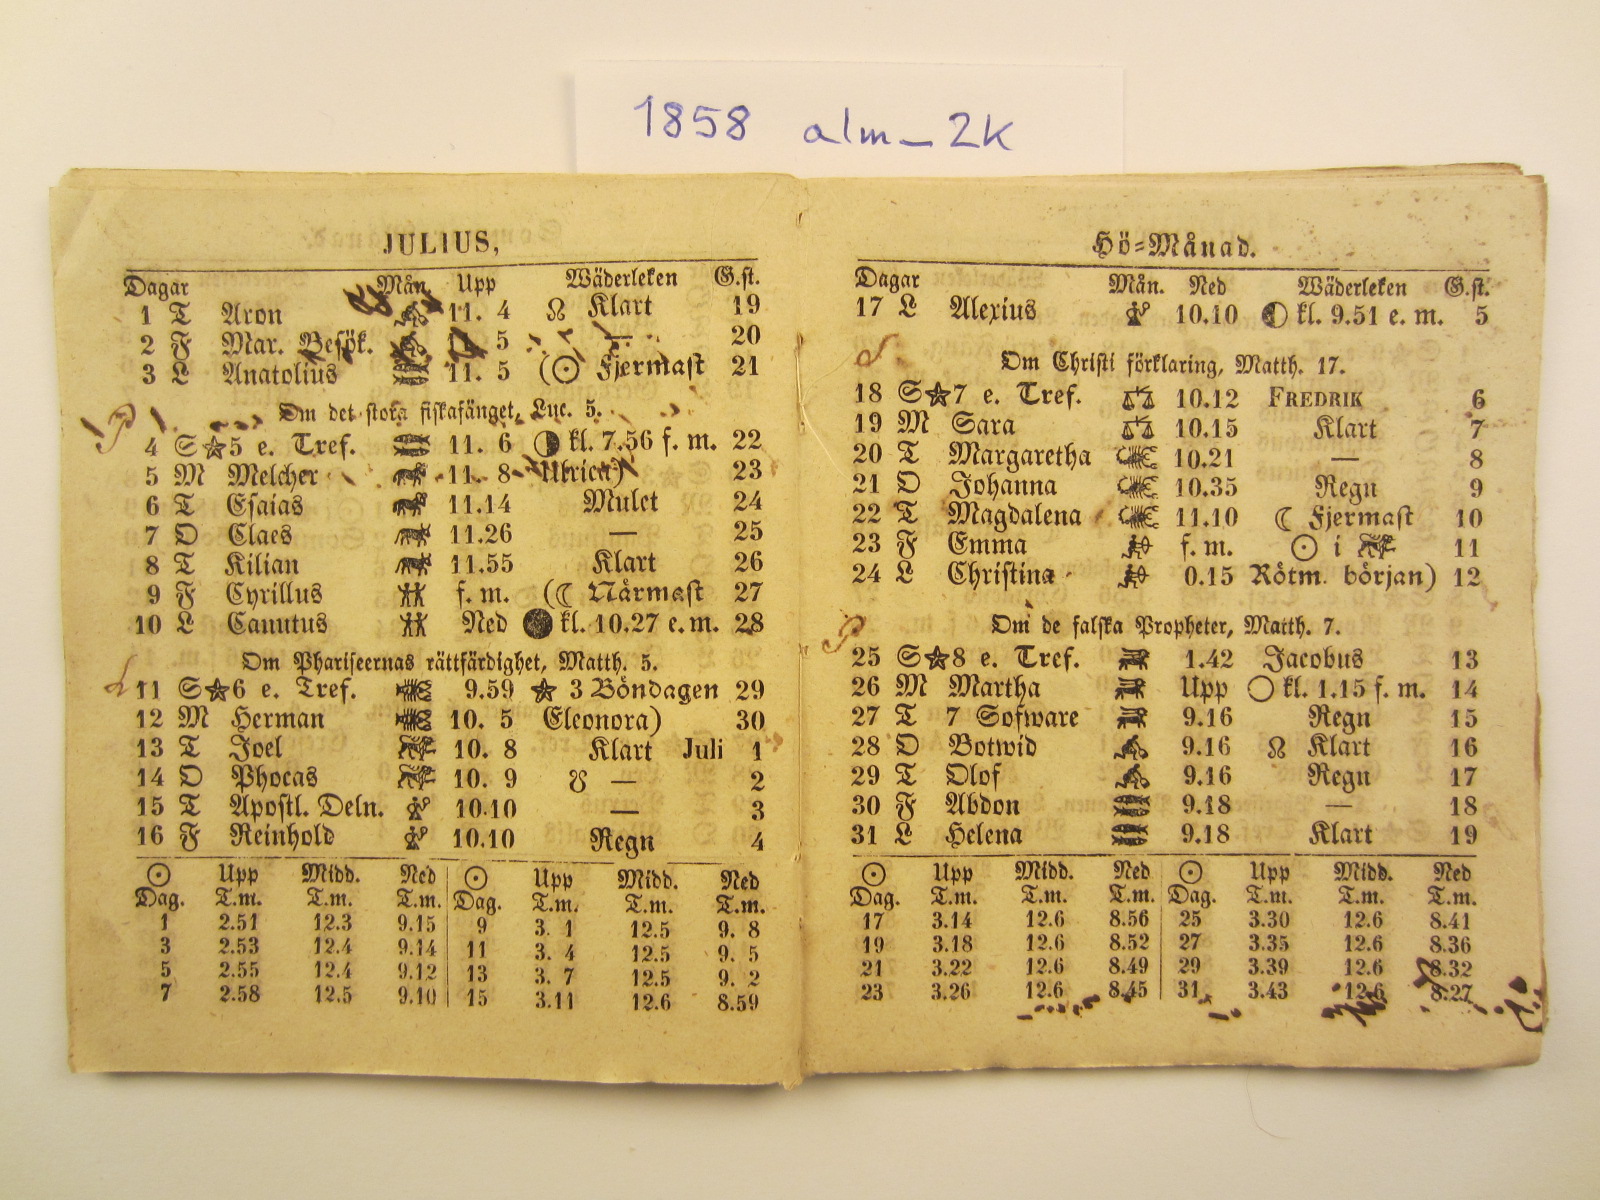 1858 alm_2k
JULIUS,
Dagar Mån. Upp Wäderleken G.st.
1 T Aron 11. 4 ☊ Klart 19
2 F Mar. Besök. 5 — 20
3 L Anatolius 11. 5 (☉ Fjermast 21
Om det stora fiskafänget, Luc. 5.
4 S★5 e. Tref. 11. 6 kl. 7.56 f. m. 22
5 M Melcher 11. 8 Ulrica) 23
6 T Esaias 11.14 Mulet 24
7 O Claes 11.26 — 25
8 T Kilian 11.55 Klart 26
9 F Cyrillus f. m. (☾ Närmast 27
10 L Canutus Ned kl. 10.27 e. m. 28
Om Phariseernas rättfärdighet, Matth. 5.
11 S★6 e. Tref. 9.59 ★ 3 Böndagen 29
12 M Herman 10. 5 Eleonora) 30
13 T Joel 10. 8 Klart Juli 1
14 O Phocas 10. 9 ☋ — 2
15 T Apostl. Deln. 10.10 — 3
16 F Reinhold 10.10 Regn 4
☉ Upp Midd. Ned ☉ Upp Midd. Ned
Dag. T.m. T.m. T.m. Dag. T.m. T.m. T.m.
1 2.51 12.3 9.15 9 3. 1 12.5 9. 8
3 2.53 12.4 9.14 11 3. 4 12.5 9. 5
5 2.55 12.4 9.12 13 3. 7 12.5 9. 2
7 2.58 12.5 9.10 15 3.11 12.6 8.59
Hö=Månad.
Dagar Mån. Ned Wäderleken G.st.
17 L Alexius 10.10 kl. 9.51 e. m. 5
Om Christi förklaring, Matth. 17.
18 S★7 e. Tref. 10.12 FREDRIK 6
19 M Sara 10.15 Klart 7
20 T Margaretha 10.21 — 8
21 O Johanna 10.35 Regn 9
22 T Magdalena 11.10 ☾ Fjermast 10
23 F Emma f. m. ☉ i 11
24 L Christina 0.15 Rötm. början) 12
Om de falska Propheter, Matth. 7.
25 S★8 e. Tref. 1.42 Jacobus 13
26 M Martha Upp kl. 1.15 f. m. 14
27 T 7 Sofware 9.16 Regn 15
28 O Botwid 9.16 ☊ Klart 16
29 T Olof 9.16 Regn 17
30 F Abdon 9.18 — 18
31 L Helena 9.18 Klart 19
☉ Upp Midd. Ned ☉ Upp Midd. Ned
Dag. T.m. T.m. T.m. Dag. T.m. T.m. T.m.
17 3.14 12.6 8.56 25 3.30 12.6 8.41
19 3.18 12.6 8.52 27 3.35 12.6 8.36
21 3.22 12.6 8.49 29 3.39 12.6 8.32
23 3.26 12.6 8.45 31 3.43 12.6 8.27